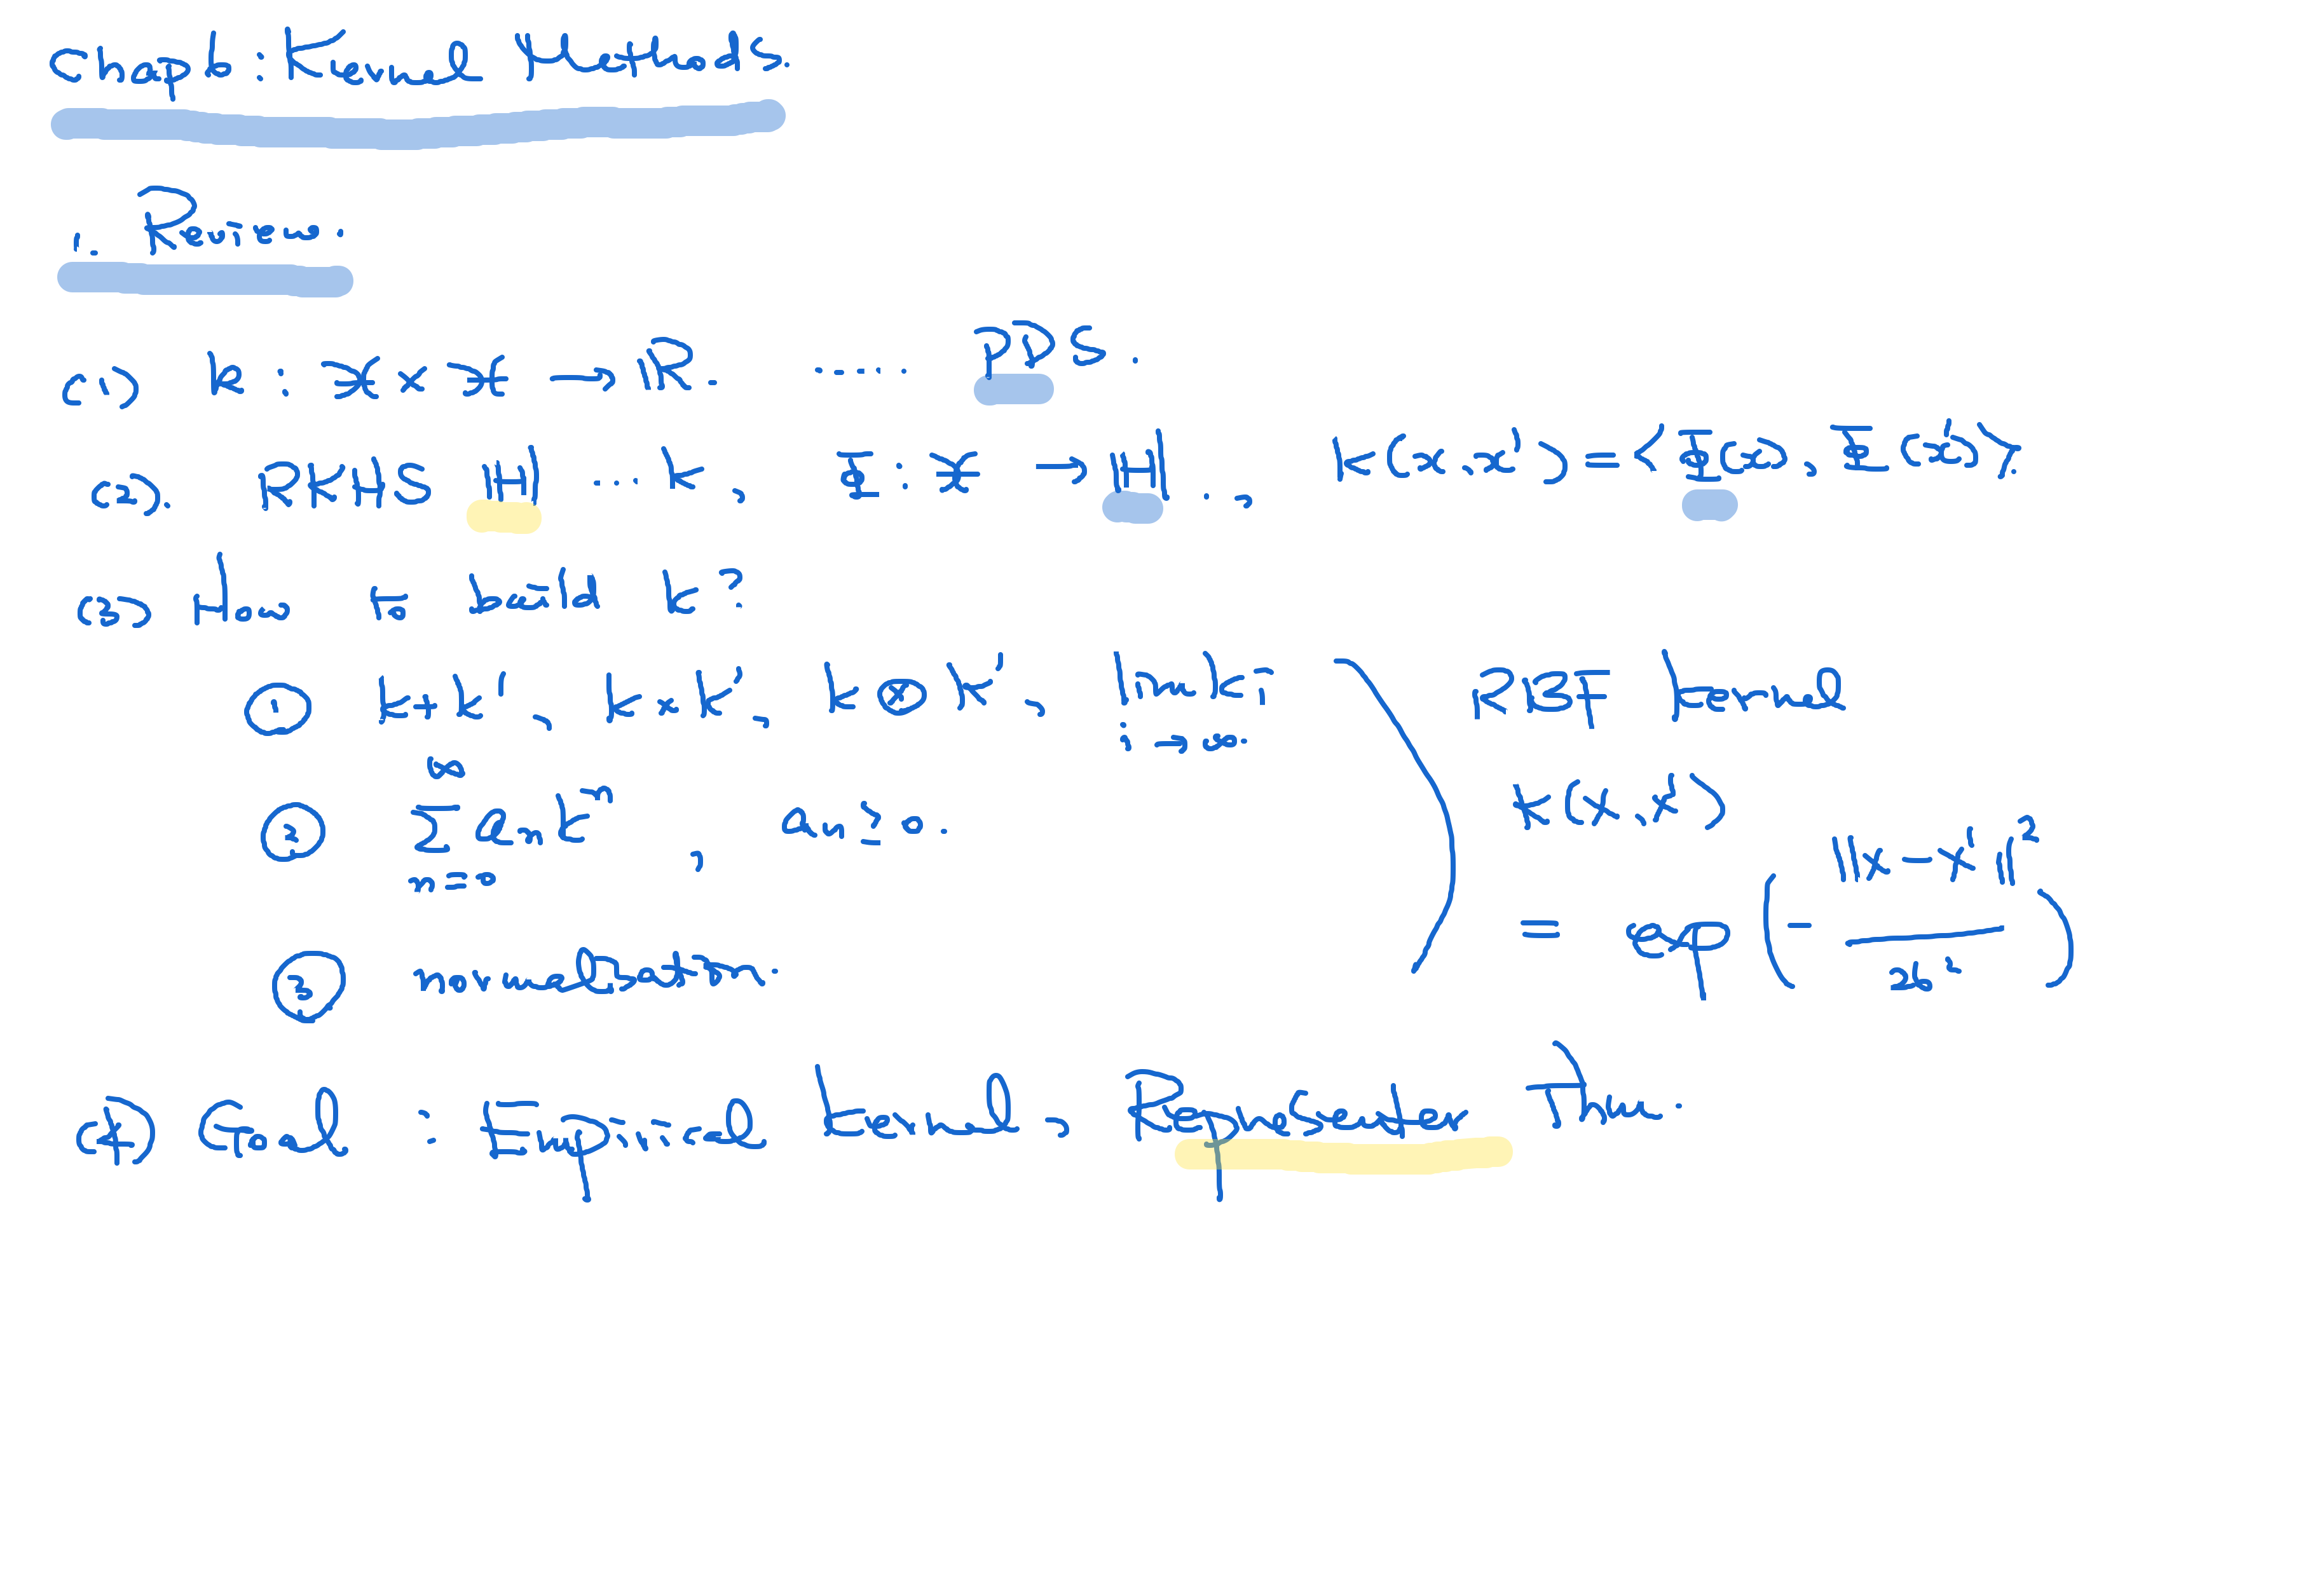 Chap 6: Kernel Methods.
1. Review.
(1) k : X × X → R. .... PDS.
(2). RKHS H ... k, Φ : X → H., k(x, x') = <Φ(x), Φ(x')>.
(3) How to build k?
① k + k', k × k', k ⊗ k', lim kᵢ i → ∞.
② ∑ n=0 ∞ aₙ kⁿ, aₙ ≥ 0.
③ normalization.
RBF kernel
k(x, x')
= exp ( - ||x - x'||² / 2σ² )
(4) Goal : Empirical kernel, Representer Thm.